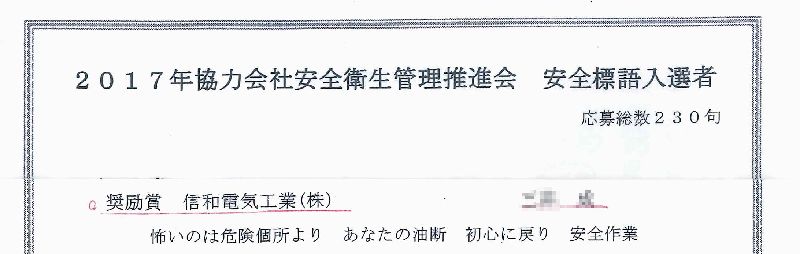 ２０１７年協力会社安全衛生管理推進会　安全標語入選者
応募総数２３０句
奨励賞　信和電気工業(株)
怖いのは危険個所より　あなたの油断　初心に戻り　安全作業